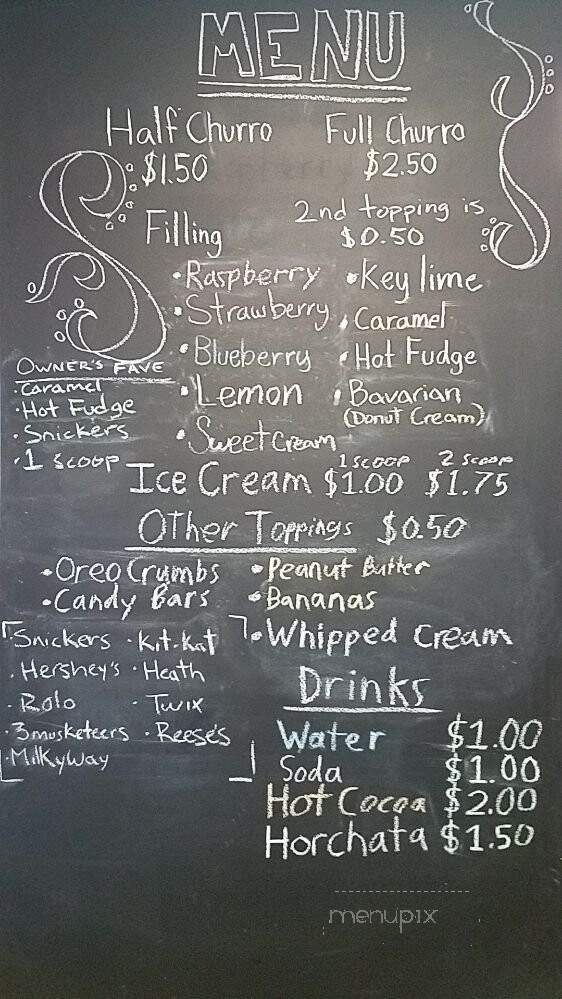 MENU
Half Churro Full Churro
$1.50 $2.50
Filling
2nd topping is
$0.50
• Raspberry
• Strawberry
• Blueberry
• Lemon
• Sweet Cream
• Key lime
• Caramel
• Hot Fudge
• Bavarian
(Donut Cream)
OWNER'S FAVE
• Caramel
• Hot Fudge
• Snickers
• 1 scoop
1 scoop 2 scoop
Ice Cream $1.00 $1.75
Other Toppings $0.50
• Oreo Crumbs
• Candy Bars
• Peanut Butter
• Bananas
• Whipped Cream
Snickers • Kit-Kat
• Hershey's • Heath
• Rolo • Twix
• 3musketeers • Reese's
• MilkyWay
Drinks
Water $1.00
Soda $1.00
Hot Cocoa $2.00
Horchata $1.50
menupix